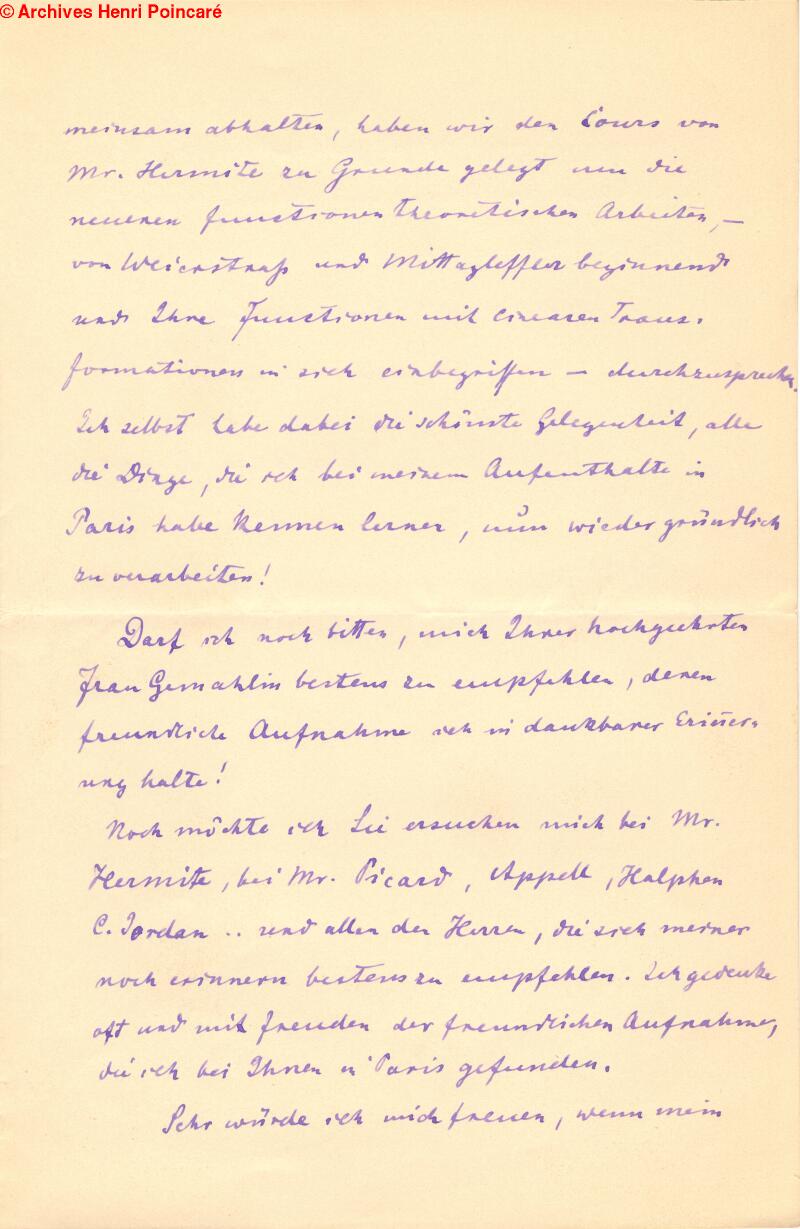 © Archives Henri Poincaré
meinsam abhalten, haben wir den Cours von
Mr. Hermite zu Grunde gelegt um die
neueren functionentheoretischen Arbeiten, –
von Weierstraß und Mittagleffler beginnend
und Ihre Functionen mit linearen Trans-
formationen in sich einbegriffen – durchzusprechen.
Ich selbst habe dabei die schönste Gelegenheit, alle
die Dinge, die ich bei meinem Aufenthalte in
Paris habe kennen lernen, nun wieder gründlich
zu verarbeiten!
Darf ich noch bitten, mich Ihrer hochgeehrten
Frau Gemahlin bestens zu empfehlen, deren
freundliche Aufnahme ich in dankbarer Erinner-
ung halte!
Noch möchte ich Sie ersuchen mich bei Mr.
Hermite, bei Mr. Picard, Appell, Halphen
C. Jordan .. und allen den Herren, die sich meiner
noch erinnern bestens zu empfehlen. Ich gedenke
oft und mit Freuden der freundlichen Aufnahme,
die ich bei Ihnen in Paris gefunden.
Sehr würde ich mich freuen, wenn mein